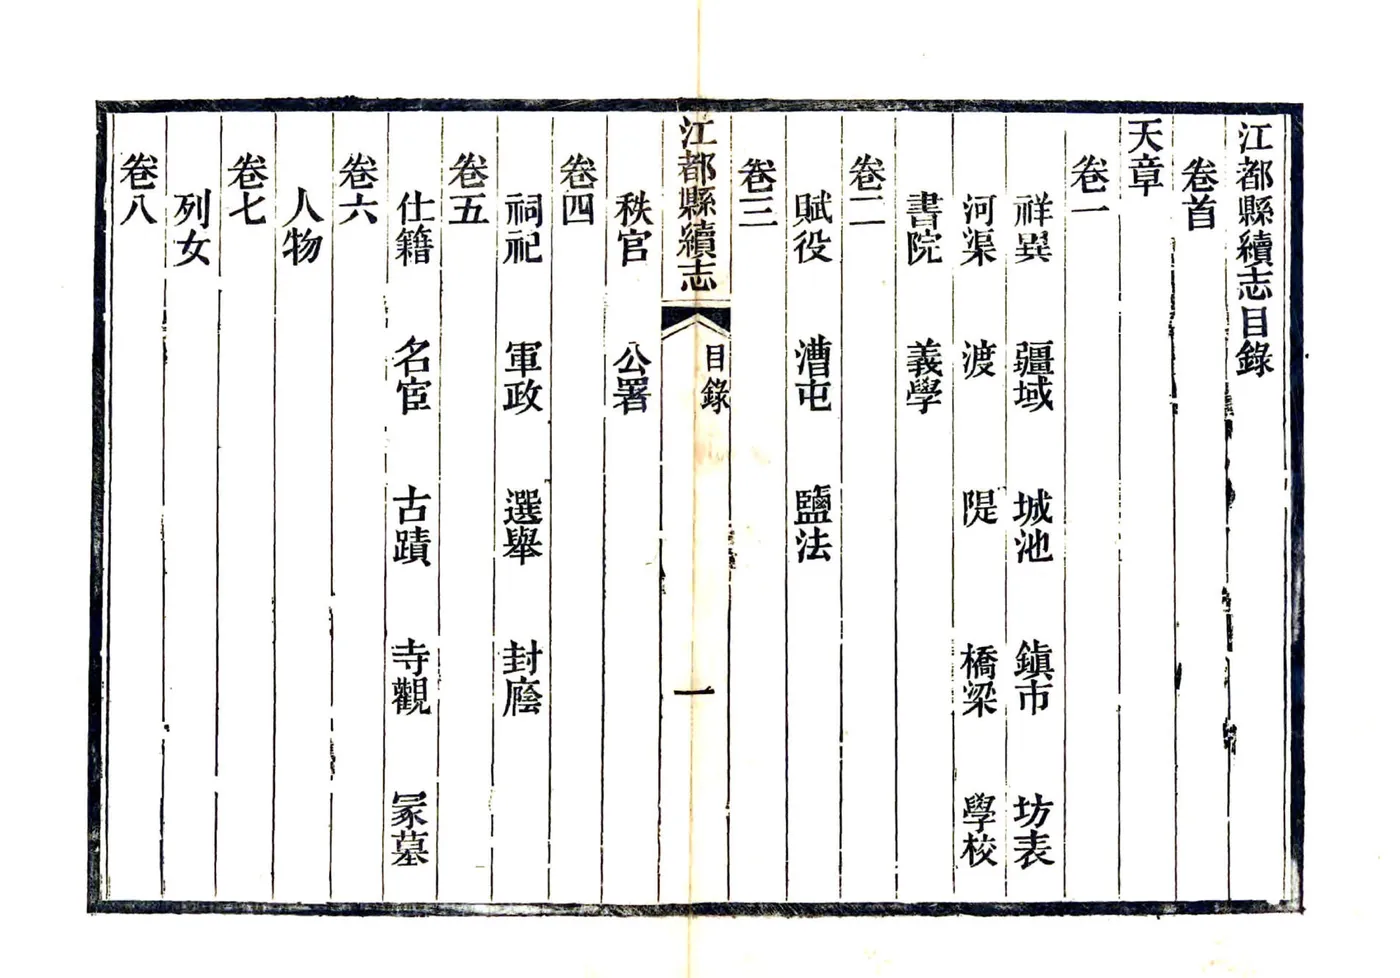 江都縣續志目錄
卷首
天章
卷一
祥異 疆域 城池 鎮市 坊表
河渠 渡 隄 橋梁 學校
書院 義學
卷二
賦役 漕屯 鹽法
卷三
江都縣續志 目錄 一
秩官 公署
卷四
祠祀 軍政 選舉 封廕
卷五
仕籍 名宦 古蹟 寺觀 冢墓
卷六
人物
卷七
列女
卷八